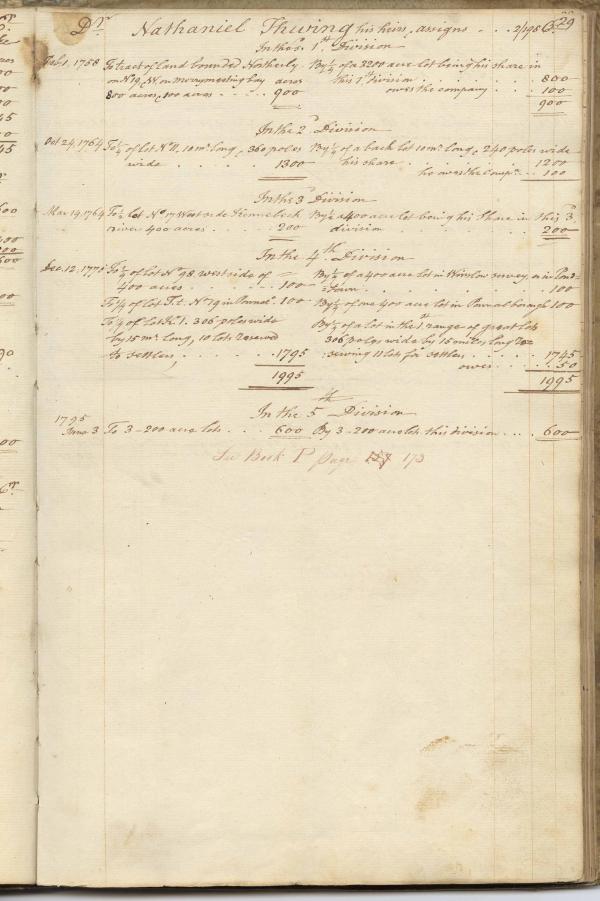 Dr. Nathaniel Thwing his heirs, assigns . . . 2/196 Cr. 29
In the 1st Division
Feb. 1. 1758 To tract of land bounded Northerly By 1/4 of a 3200 acre lot being his share in
on No. 9, & W. on Merrymeeting bay acres this 1st division . . . . . . 800
800 acres, 100 acres . . . . 900 owes the company . . . . 100
900
In the 2d Division
Oct 24, 1764 To 1/4 of lot No. 11, 10 m. long, 360 poles By 1/4 of a back lot 10 m. long, 240 poles wide
wide . . . . 1300 his share . . . . . . . 1200
he owes the Comp. . . 100
In the 3d Division
Mar 19, 1764 To 1/2 lot No. 17 West side Kennebeck By 1/2 a 400 acre lot being his Share in this 3d
river 400 acres . . . . 200 division . . . . . . . 200
In the 4th Division
Dec. 12. 1770 To 1/4 of lot No. 98 west side of By 1/4 of a 400 acre lot in Winslow survey, or in Pond=
400 acres . . . . . 100 =town . . . . . . . 100
To 1/4 of lot No. 19 in Pownal. 100 By 1/4 of one 400 acre lot in Pownalborough 100
To 1/4 of lot 1. 306 poles wide By 1/4 of a lot in the 1st range of great lots
by 15 m. long, 10 lots reserved 306 poles wide by 15 miles long re=
to settlers, . . . . . 1795 =serving 11 lots for settlers . . . . . 1745
owes . . . . 50
1995 1995
In the 5th Division
1795
June 3 To 3-200 acre lots . . . 600 By 3-200 acre lots this division . . . 600
See Book P page 173